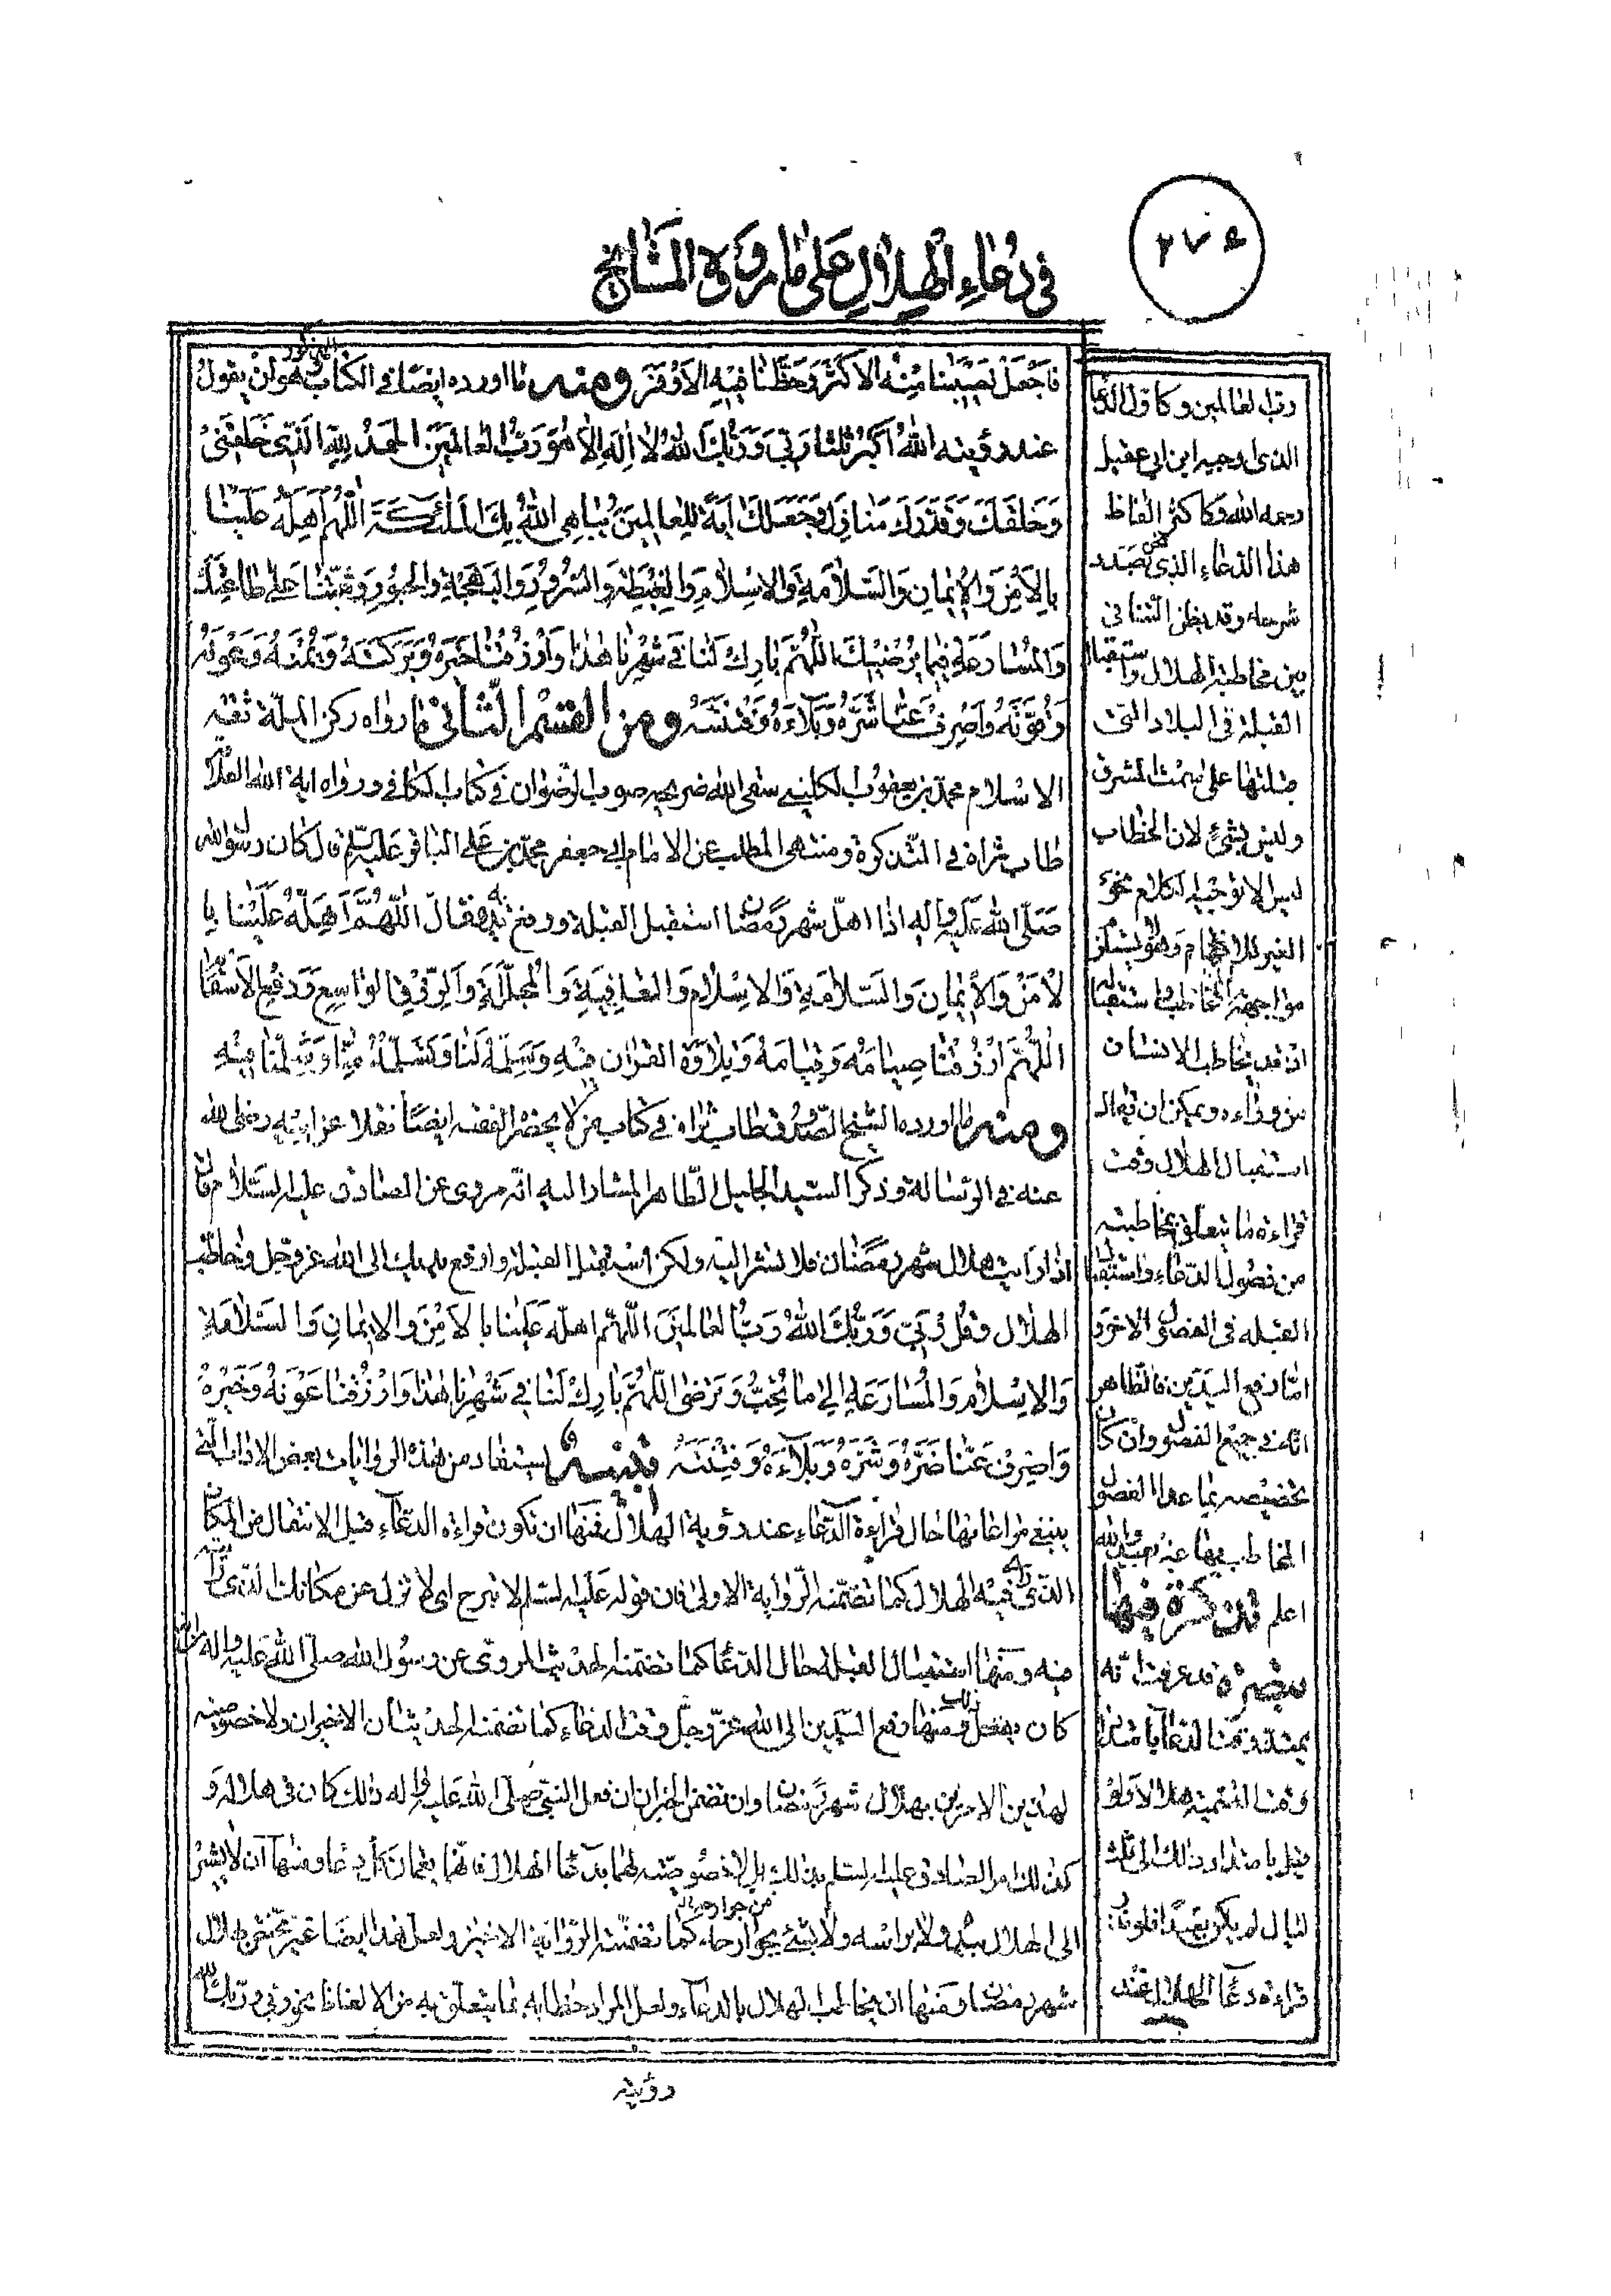 ٢٧٤
في دعاء الهلال على ما رواه المشايخ
فَاجْعَلْ نَصيبَنا مِنْهُ الاَكْثَرَ وَحَظَّنا فيهِ الاَوْفَرَ ومنه ما اورده ايضا في الكتاب المذكور هو ان يقول
عند رؤيته اللهُ اَكْبَرُ ثلثا رَبّي وَرَبُّكَ اللهُ لا اِلهَ اِلا هُوَ رَبُّ الْعالَمينَ الْحَمْدُ لِلّهِ الَّذي خَلَقَني
وَخَلَقَكَ وَقَدَّرَكَ مَنازِلَ وَجَعَلَكَ ايَةً لِلْعالَمينَ يُباهِي اللهُ بِكَ الْمَلئِكَةَ اَللّهُمَّ اَهِلَّهُ عَلَيْنا
بِالاَمْنِ وَالاِيمانِ وَالسَّلامَةِ وَالاِسْلامِ وَالْغِبْطَةِ وَالسُّرُورِ وَالْبَهْجَةِ وَالْحُبُورِ وَثَبِّتْنا عَلى طاعَتِكَ
وَالْمُسارَعَةِ فيما يُرْضيكَ اَللّهُمَّ بارِكْ لَنا في شَهْرِنا هذا وَارْزُقْنا خَيْرَهُ وَبَرَكَتَهُ وَيُمْنَهُ وَعَوْنَهُ
وَقُوَّتَهُ وَاصْرِفْ عَنّا شَرَّهُ وَبَلاءَهُ وَفِتْنَتَهُ ومن القسم الثاني ما رواه ركن الملة ثقة
الاسلام محمد بن يعقوب الكليني سقى الله ضريحه صوب الرضوان في كتاب الكافي ورواه اية الله العلامة
طاب ثراه في التذكرة ومنتهى المطلب عن الامام ابي جعفر محمد بن علي الباقر عليه السلم قال كان رسول الله
صلى الله عليه واله اذا اهل شهر رمضان استقبل القبلة ورفع يديه فقال اَللّهُمَّ اَهِلَّهُ عَلَيْنا با
لاَمْنِ وَالاِيمانِ وَالسَّلامَةِ وَالاِسْلامِ وَالْعافِيَةِ وَالْمُجَلَّلَةِ وَالرِّزْقِ الْواسِعِ وَدَفْعِ الاَسْقامِ
اَللّهُمَّ ارْزُقْنا صِيامَهُ وَقِيامَهُ وَتِلاوَةَ الْقُرْانِ فيهِ وَسَلِّمْهُ لَنا وَتَسَلَّمْهُ مِنّا وَسَلِّمْنا فيهِ
ومنه ما اورده الشيخ الصدوق طاب ثراه في كتاب من لا يحضره الفقيه ايضا نقلا عن ابيه رضي الله
عنه في الرسالة وذكر السيد الجليل الطاهر المشار اليه انه مروي عن الصادق عليه السلام قال
اذا رايت هلال شهر رمضان فلا تشر اليه ولكن استقبل القبلة وارفع يديك الى الله عز وجل وخاطب
الهلال وقل رَبّي وَرَبُّكَ اللهُ رَبُّ الْعالَمينَ اَللّهُمَّ اَهِلَّهُ عَلَيْنا بالاَمْنِ وَالاِيمانِ وَالسَّلامَةِ
وَالاِسْلامِ وَالْمُسارَعَةِ اِلى ما تُحِبُّ وَتَرْضى اَللّهُمَّ بارِكْ لَنا في شَهْرِنا هذا وَارْزُقْنا عَوْنَهُ وَخَيْرَهُ
وَاصْرِفْ عَنّا ضَرَّهُ وَشَرَّهُ وَبَلاءَهُ وَفِتْنَتَهُ تنبيه يستفاد من هذه الروايات بعض الاداب التي
ينبغي مراعاتها حال قراءة الدعاء عند رؤية الهلال فمنها ان تكون قراءة الدعاء قبل الانتقال من المكان
الذي راى فيه الهلال كما تضمنه الرواية الاولى فان قوله عليه السلم لا تبرح اي لا تزل عن مكانك الذي رأيته
فيه ومنها استقبال القبلة حال الدعا كما تضمنه الحديث المروي عن رسول الله صلى الله عليه واله من انه
كان يفعل ذلك ومنها رفع اليدين الى الله عز وجل وقت الدعاء كما تضمنه الحديثان الاخيران ولا خصوصية
لهذين الامرين بهلال شهر رمضان وان تضمن الخبران ان فعل النبي صلى الله عليه واله ذلك كان في هلاله و
كذلك امر الصادق عليه السلم بذلك بل لا خصوصية لهما بدعا الهلال فانهما يعمان كل دعا ومنها ان لا يشير
الى الهلال بيده ولا براسه ولا بشئ من جوارحه كما تضمنته الرواية الاخيرة ولعل هذا ايضا غير مختص بهلال
شهر رمضان ومنها ان يخاطب الهلال بالدعاء ولعل المراد خطابه بما يتعلق به من الالفاظ نحو ربي وربك الله
رب العالمين وكاول الدعا
الذي اوجبه ابن ابي عقيل
رحمه الله وكاكثر الفاظ
هذا الدعاء الذي نحن بصدد
شرحه وقد يظن التنافي
بين مخاطبة الهلال واستقبال
القبلة في البلاد التي
قبلتها على سمت المشرق
وليس بشئ لان الخطاب
ليس الا توجيه الكلام نحو
الغير للافهام وهو لا يستلزم
مواجهة المخاطب واستقباله
اذ قد يخاطب الانسان
من وراءه ويمكن ان يقال
استقبال الهلال وقت
قراءة ما يتعلق بمخاطبته
من فصول الدعاء واستقبال
القبلة في الفصول الاخر و
اما رفع اليدين فالظاهر
انه في جميع الفصول وان كان
تخصيصه بما عدا الفصول
المخاطب بها غير بعيد والله
اعلم تذكرة فيها
تبصرة قد عرفت انه
يمتد وقت الدعا بامتداد
وقت التسمية هلالا ولو
قيل بامتداد ذلك الى ثلث
ليال لم يكن بعيدا فلو نذر
قراءة دعا الهلال عند
رؤيته